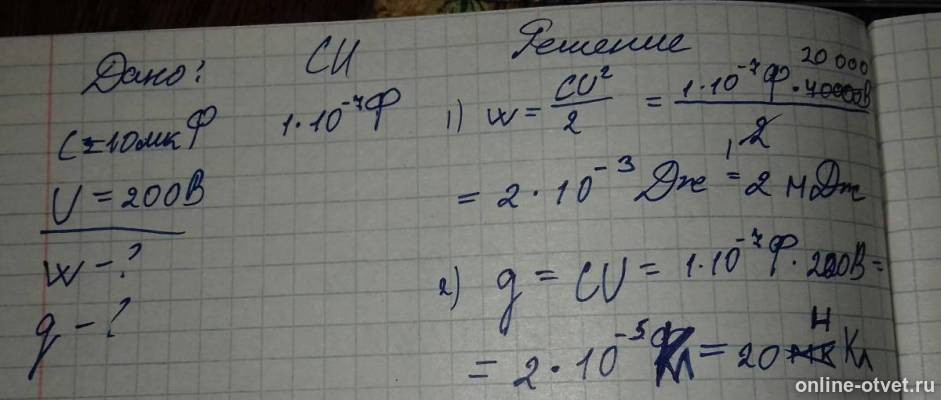 Дано:
C=10мкФ
U=200В
W-?
q-?
СИ
1·10⁻⁷Ф
Решение
1) W = CU²/2 = 1·10⁻⁷Ф·40000В/2
20 000
1
= 2·10⁻³Дж = 2 мДж
2) q = CU = 1·10⁻⁷Ф·200В=
= 2·10⁻⁵Кл = 20 Кл
н
online-otvet.ru